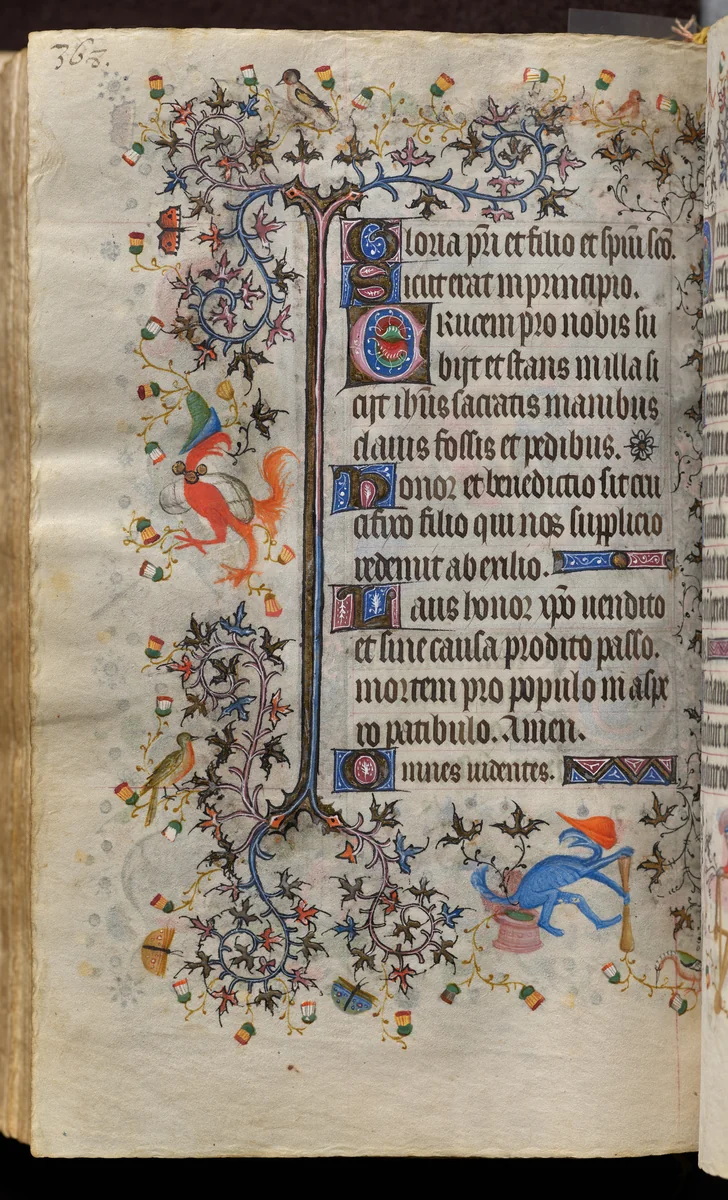 363.
Gloria pri et filio et spiui sco.
Sicut erat in principio.
Crucem pro nobis su
bijt et stans in illa si
cijt ihus sacratis manibus
clauis fossis et pedibus.
honor et benedictio sit cru
cifixo filio qui nos supplicio
redemit ab exilio.
Laus honor xpo uendito
et sine causa prodito passo.
mortem pro populo in aspe
ro patibulo. Amen.
Omnes uidentes.